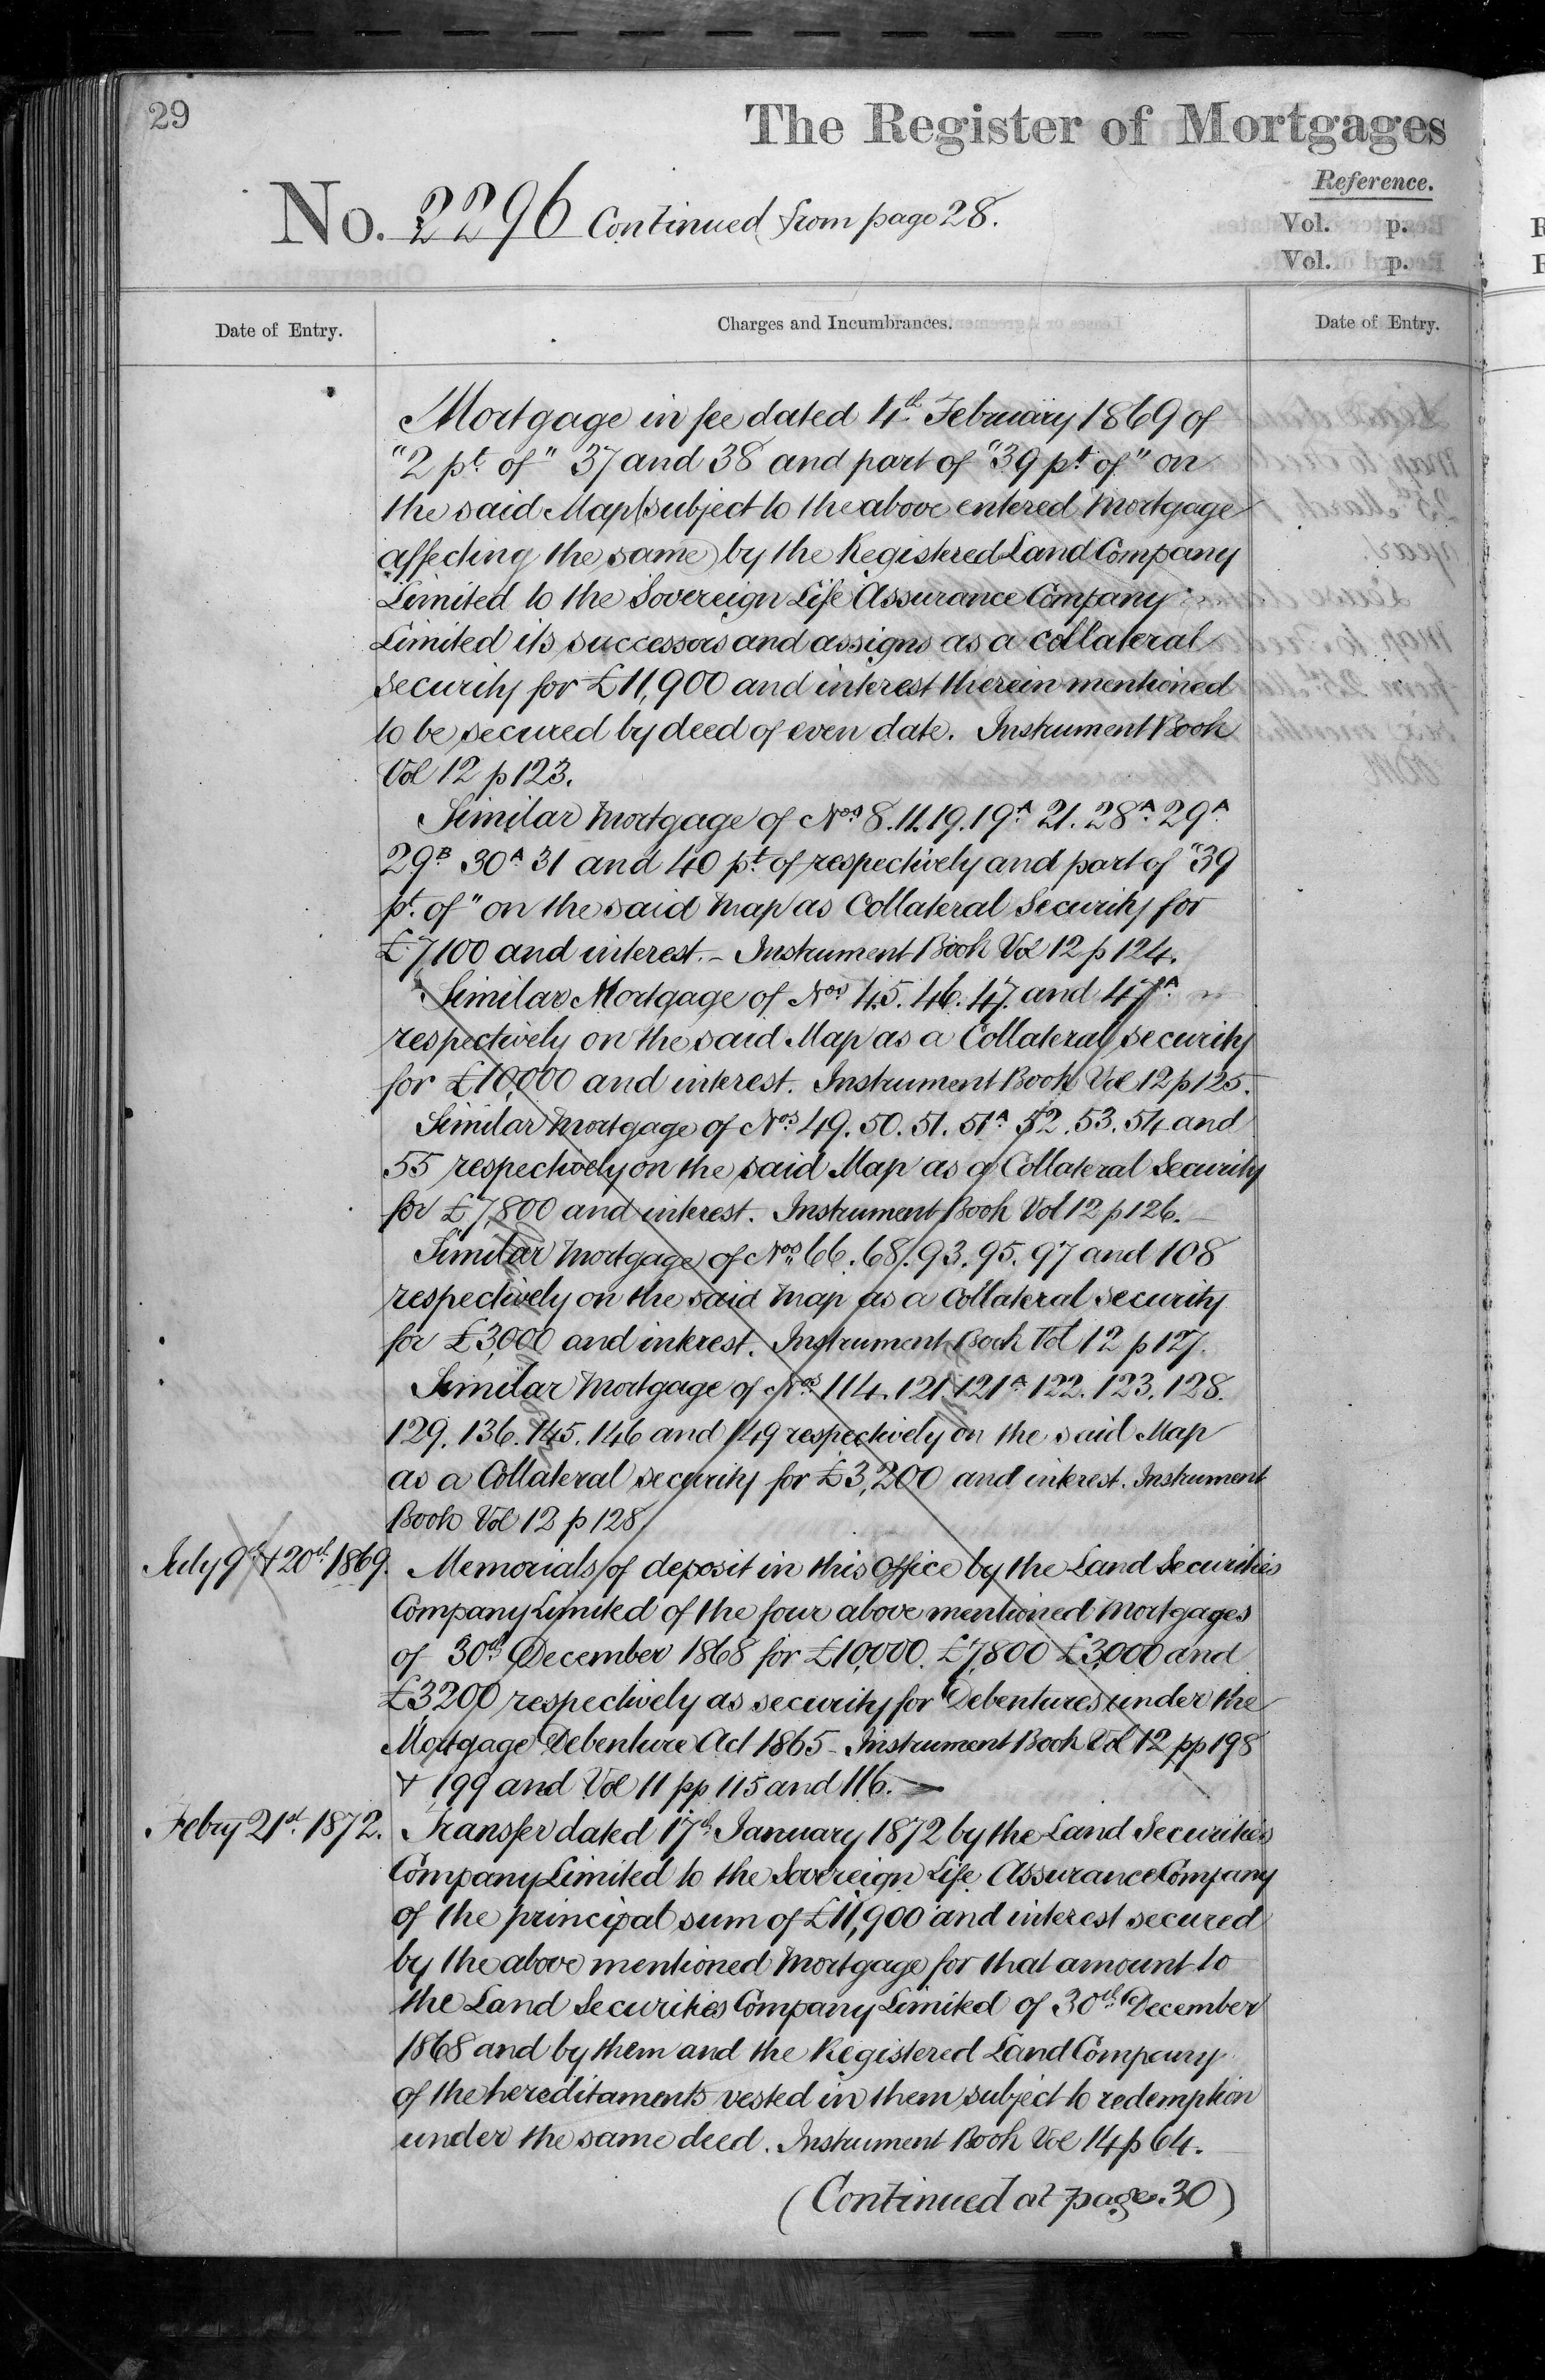 29
The Register of Mortgages
Reference.
No. 2296 Continued from page 28.
Vol. p.
Vol. p.
Date of Entry.
Charges and Incumbrances.
Date of Entry.
Mortgage in fee dated 4th February 1869 of
"2 pt. of" 37 and 38 and part of "39 pt. of" on
the said Map (subject to the above entered Mortgage
affecting the same) by the Registered Land Company
Limited to the Sovereign Life Assurance Company
Limited its successors and assigns as a collateral
security for £11,900 and interest therein mentioned
to be secured by deed of even date. Instrument Book
Vol 12 p 123.
Similar Mortgage of Nos. 8. 11. 19. 19A 21. 28A 29A
29B 30A 31 and 40 pt. of respectively and part of "39
pt. of" on the said Map as Collateral Security for
£7,100 and interest. – Instrument Book Vol 12 p 124.
Similar Mortgage of Nos. 45. 46. 47. and 47A
respectively on the said Map as a Collateral security
for £10,000 and interest. Instrument Book Vol 12 p 125.
Similar Mortgage of Nos. 49. 50. 51. 51A 52. 53. 54 and
55 respectively on the said Map as a Collateral Security
for £7,800 and interest. Instrument Book Vol 12 p 126.
Similar Mortgage of Nos. 66. 68. 93. 95. 97 and 108
respectively on the said Map as a Collateral security
for £3,000 and interest. Instrument Book Vol 12 p 127.
Similar Mortgage of Nos. 114. 121. 121A 122. 123. 128.
129. 136. 145. 146 and 149 respectively on the said Map
as a Collateral security for £3,200 and interest. Instrument
Book Vol 12 p 128
July 9th & 20th 1869. Memorials of deposit in this Office by the Land Securities
Company Limited of the four above mentioned Mortgages
of 30th December 1868 for £10,000. £7,800 £3,000 and
£3200 respectively as security for Debentures under the
Mortgage Debenture Act 1865 – Instrument Book Vol 12 pp 198
& 199 and Vol 11 pp 115 and 116. –
Febry 21st 1872. Transfer dated 17th January 1872 by the Land Securities
Company Limited to the Sovereign Life Assurance Company
of the principal sum of £11,900 and interest secured
by the above mentioned Mortgage for that amount to
the Land Securities Company Limited of 30th December
1868 and by them and the Registered Land Company
of the hereditaments vested in them subject to redemption
under the same deed. Instrument Book Vol 14 p 64.
(Continued at page 30)